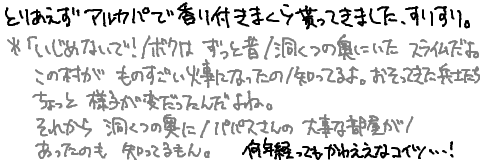 とりあえずアルカパで香り付きまくら貰ってきました、すりすり。
※「いじめないで!/ボクはずっと昔/洞くつの奥にいたスライムだよ
この村がものすごい火事になったの/知ってるよ。おそってきた兵士たち
ちょっと様子が変だったんだよね。
それから洞くつの奥に/パパスさんの大事な部屋が/
あったのも知ってるもん。 何年経ってもかわええなコイツ…!